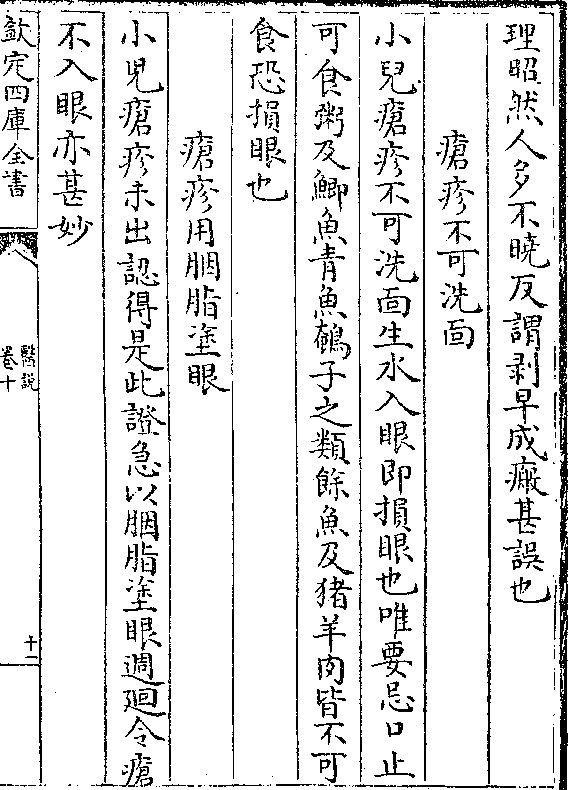 理昭然人多不曉反謂剥早成瘢甚誤也
瘡疹不可洗面
小兒瘡疹不可洗面生水入眼即損眼也唯要忌口止
可食粥及鯽魚青魚鵪子之類餘魚及猪羊肉皆不可
食恐損眼也
瘡疹用胭脂塗眼
小兒瘡疹未出認得是此證急以胭脂塗眼週廻令瘡
不入眼亦甚妙
欽定四庫全書
醫説
卷十
十一